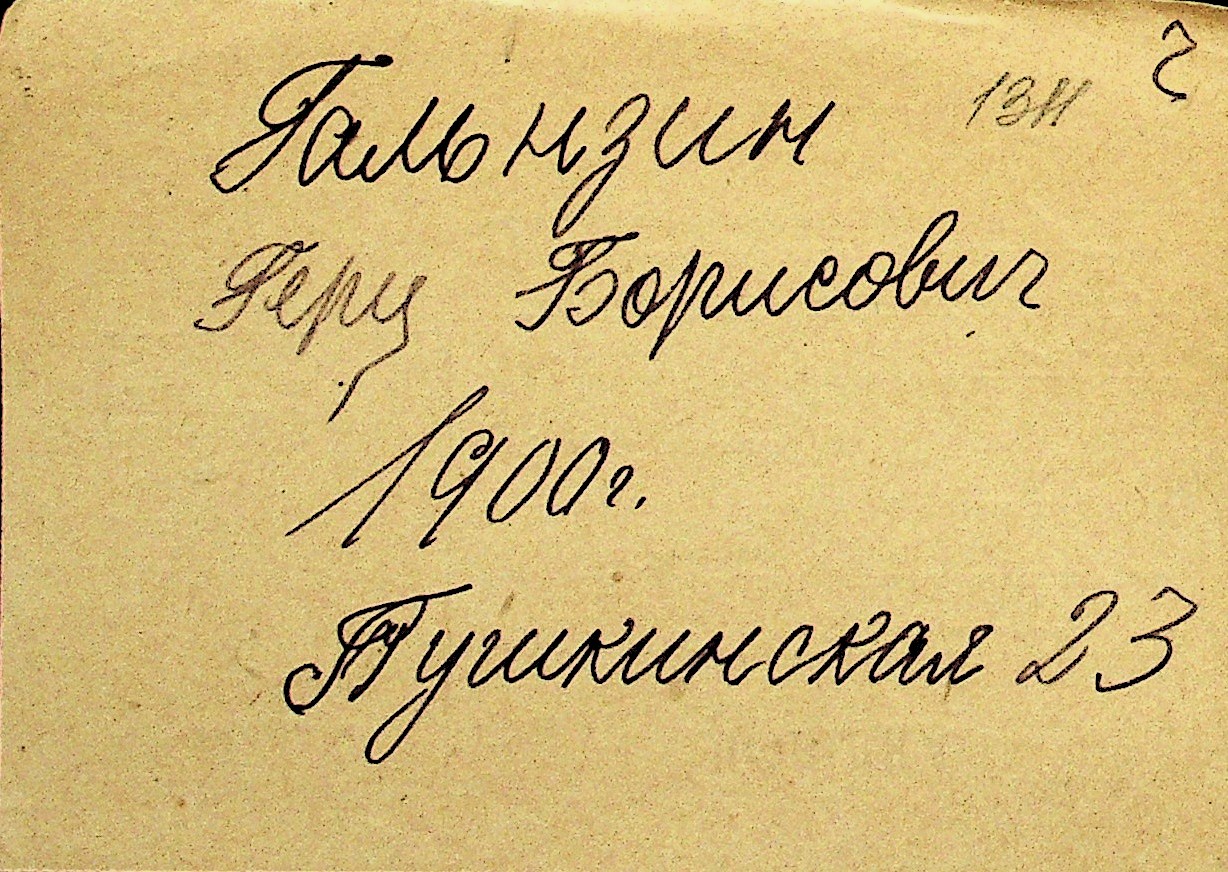 Гальнзин
Герц Борисович
1900г.
Пушкинская 23